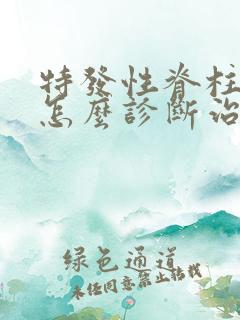 特發性脊柱
怎麼診斷治
綠色通道
未經同意禁止轉載